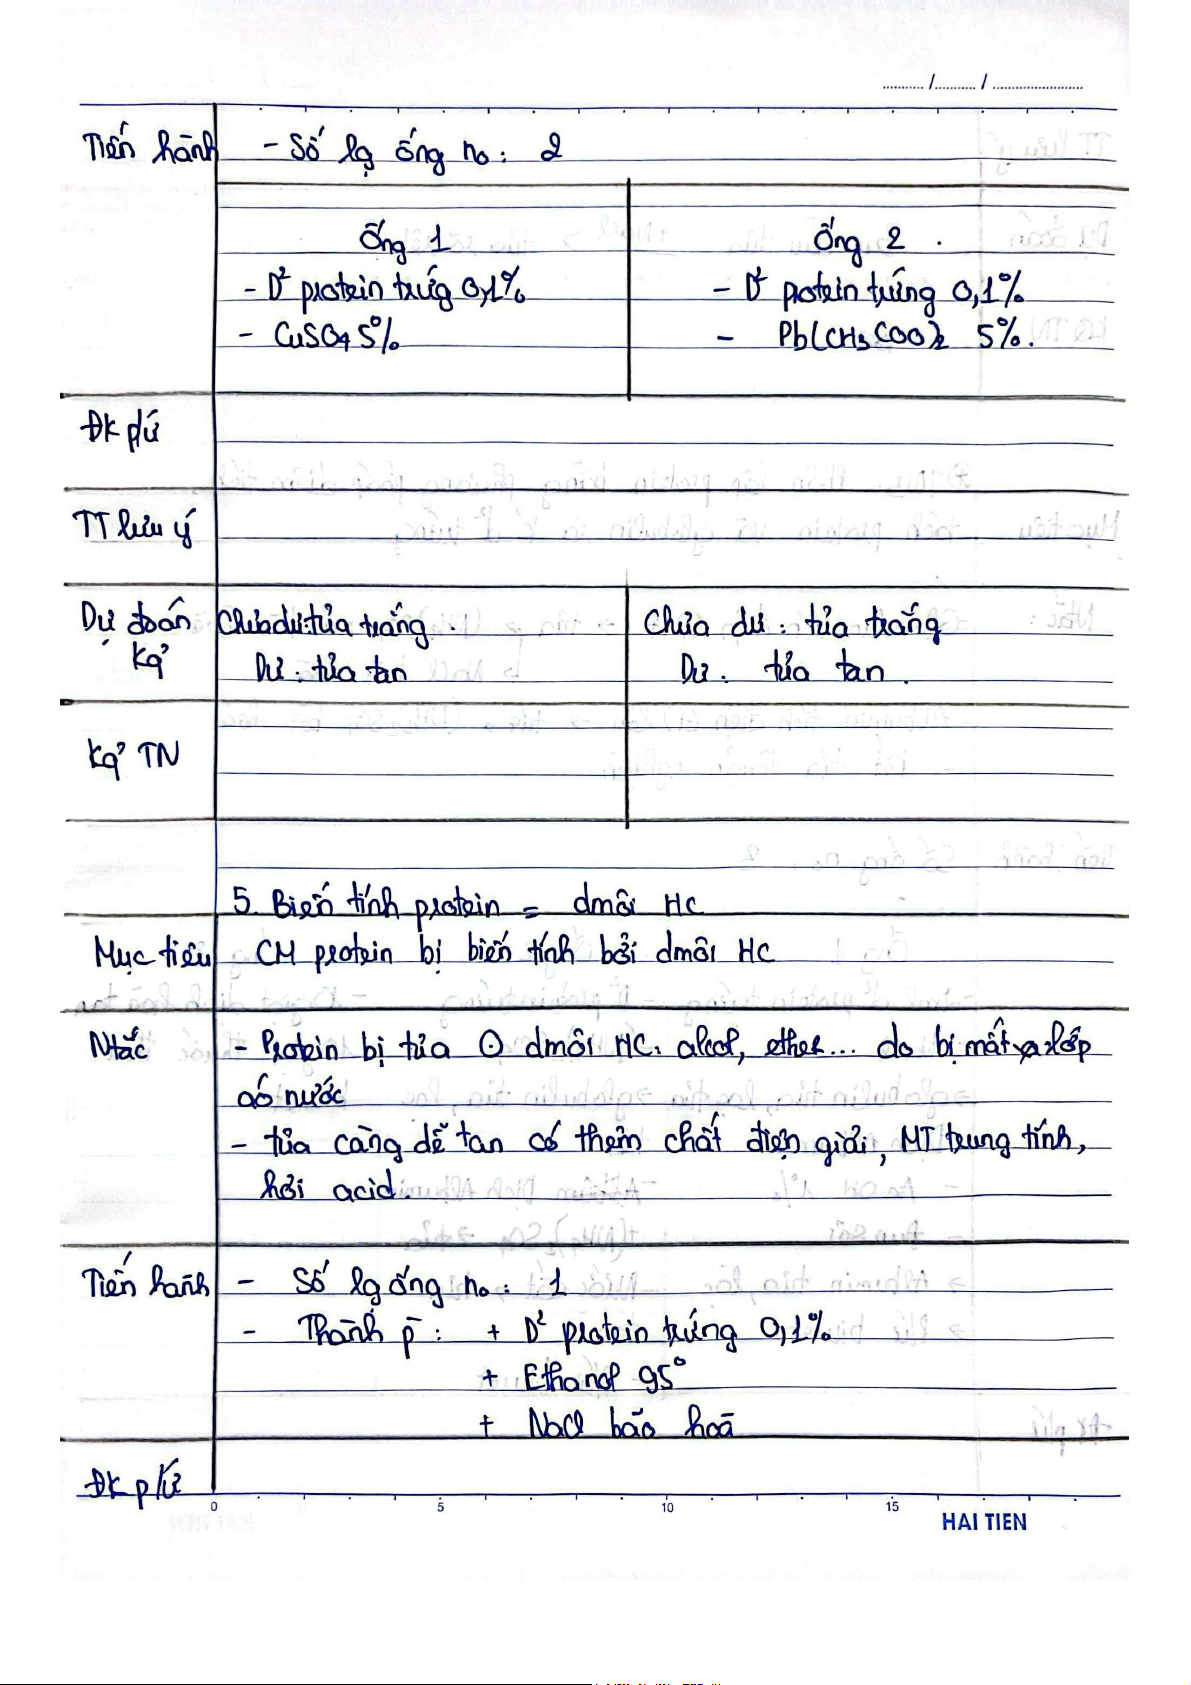 ........... /........... / ........................
Tiến hành - Số lg ống no: 2
Ống 1 Ống 2 .
- D² protein trứg 0,1% - D² protein trứng 0,1%
- CuSO4 5% - Pb(CH3COO)2 5%.
Đk pứ
TT lưu ý
Dự đoán Chưa dư: tủa trắng. Chưa dư: tủa trắng
Kq' Dư: tủa tan Dư: tủa tan.
Kq' TN
5. Biến tính protein = dmôi HC
Mục tiêu CM protein bị biến tính bởi dmôi HC
Ntắc - Protein bị tủa dmôi HC: alcol, ether... do bị mất lớp
áo nước
- tủa càng dễ tan có thêm chất điện giải, MT trung tính,
hơi acid.
Tiến hành - Số lg ống no: 1
- Thành p̄: + D² protein trứng 0,1%
+ Ethanol 95°
+ NaCl bão hoà
Đk pứ
0 5 10 15
HAI TIEN